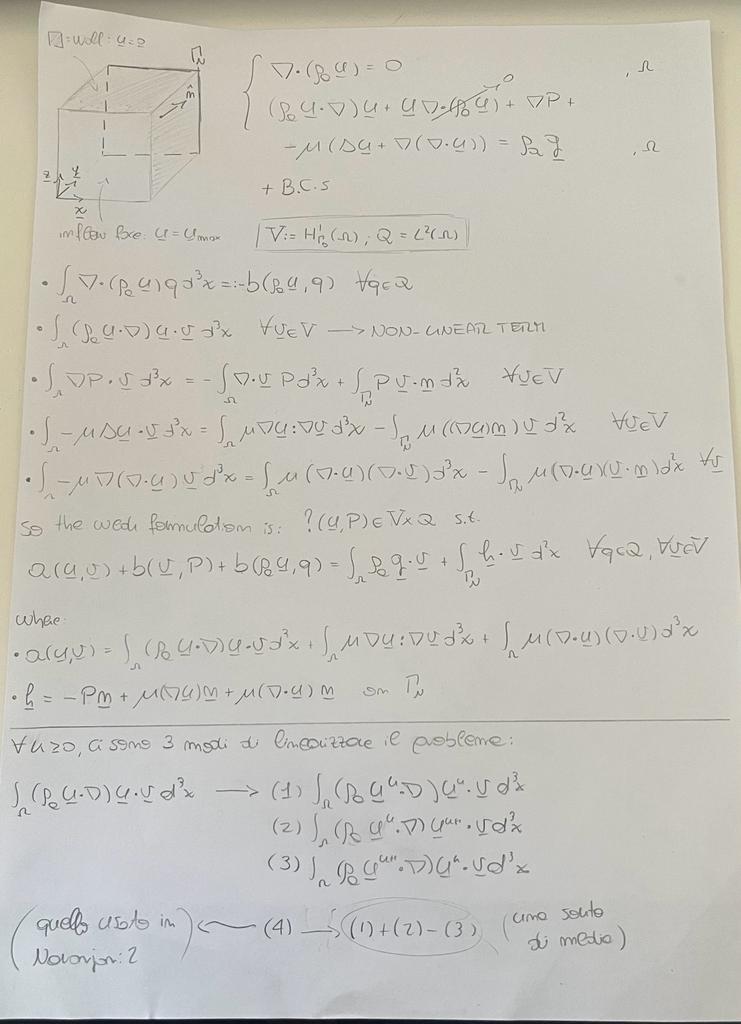 ▱=wall: u=0
Γ_N
n̂
z y
x
inflow face: u=u_max
{ ∇·(ρ₀u) = 0 , Ω
(ρ₀u·∇)u + u∇·(ρ₀u) → 0 + ∇P +
-μ(Δu + ∇(∇·u)) = ρ₀g , Ω
+ B.C.s
V:= H¹_Γ₀(Ω) ; Q = L²(Ω)
• ∫_Ω ∇·(ρ₀u)q d³x =: -b(ρ₀u,q) ∀q∈Q
• ∫_Ω (ρ₀u·∇)u·v d³x ∀v∈V → NON-LINEAR TERM
• ∫_Ω ∇P·v d³x = -∫_Ω ∇·v P d³x + ∫_Γ_N P v·n d²x ∀v∈V
• ∫_Ω -μΔu·v d³x = ∫_Ω μ∇u:∇v d³x - ∫_Γ_N μ((∇u)n)v d²x ∀v∈V
• ∫_Ω -μ∇(∇·u)v d³x = ∫_Ω μ(∇·u)(∇·v)d³x - ∫_Γ_N μ(∇·u)(v·n)d²x ∀v
So the weak formulation is: ?(u,P)∈V×Q s.t.
a(u,v)+b(v,P)+b(ρ₀u,q) = ∫_Ω ρ₀g·v + ∫_Γ_N h·v d²x ∀q∈Q, ∀v∈V
where:
• a(u,v) = ∫_Ω (ρ₀u·∇)u·v d³x + ∫_Ω μ∇u:∇v d³x + ∫_Ω μ(∇·u)(∇·v)d³x
• h = -Pn + μ(∇u)n + μ(∇·u)n on Γ_N
∀n≥0, ci sono 3 modi di linearizzare il problema:
∫_Ω (ρ₀u·∇)u·v d³x → (1) ∫_Ω (ρ₀uⁿ·∇)uⁿ·v d³x
(2) ∫_Ω (ρ₀uⁿ·∇)uⁿ⁺¹·v d³x
(3) ∫_Ω (ρ₀uⁿ⁺¹·∇)uⁿ·v d³x
(quello usato in ← (4) → (1)+(2)-(3) (una sorta
di media)